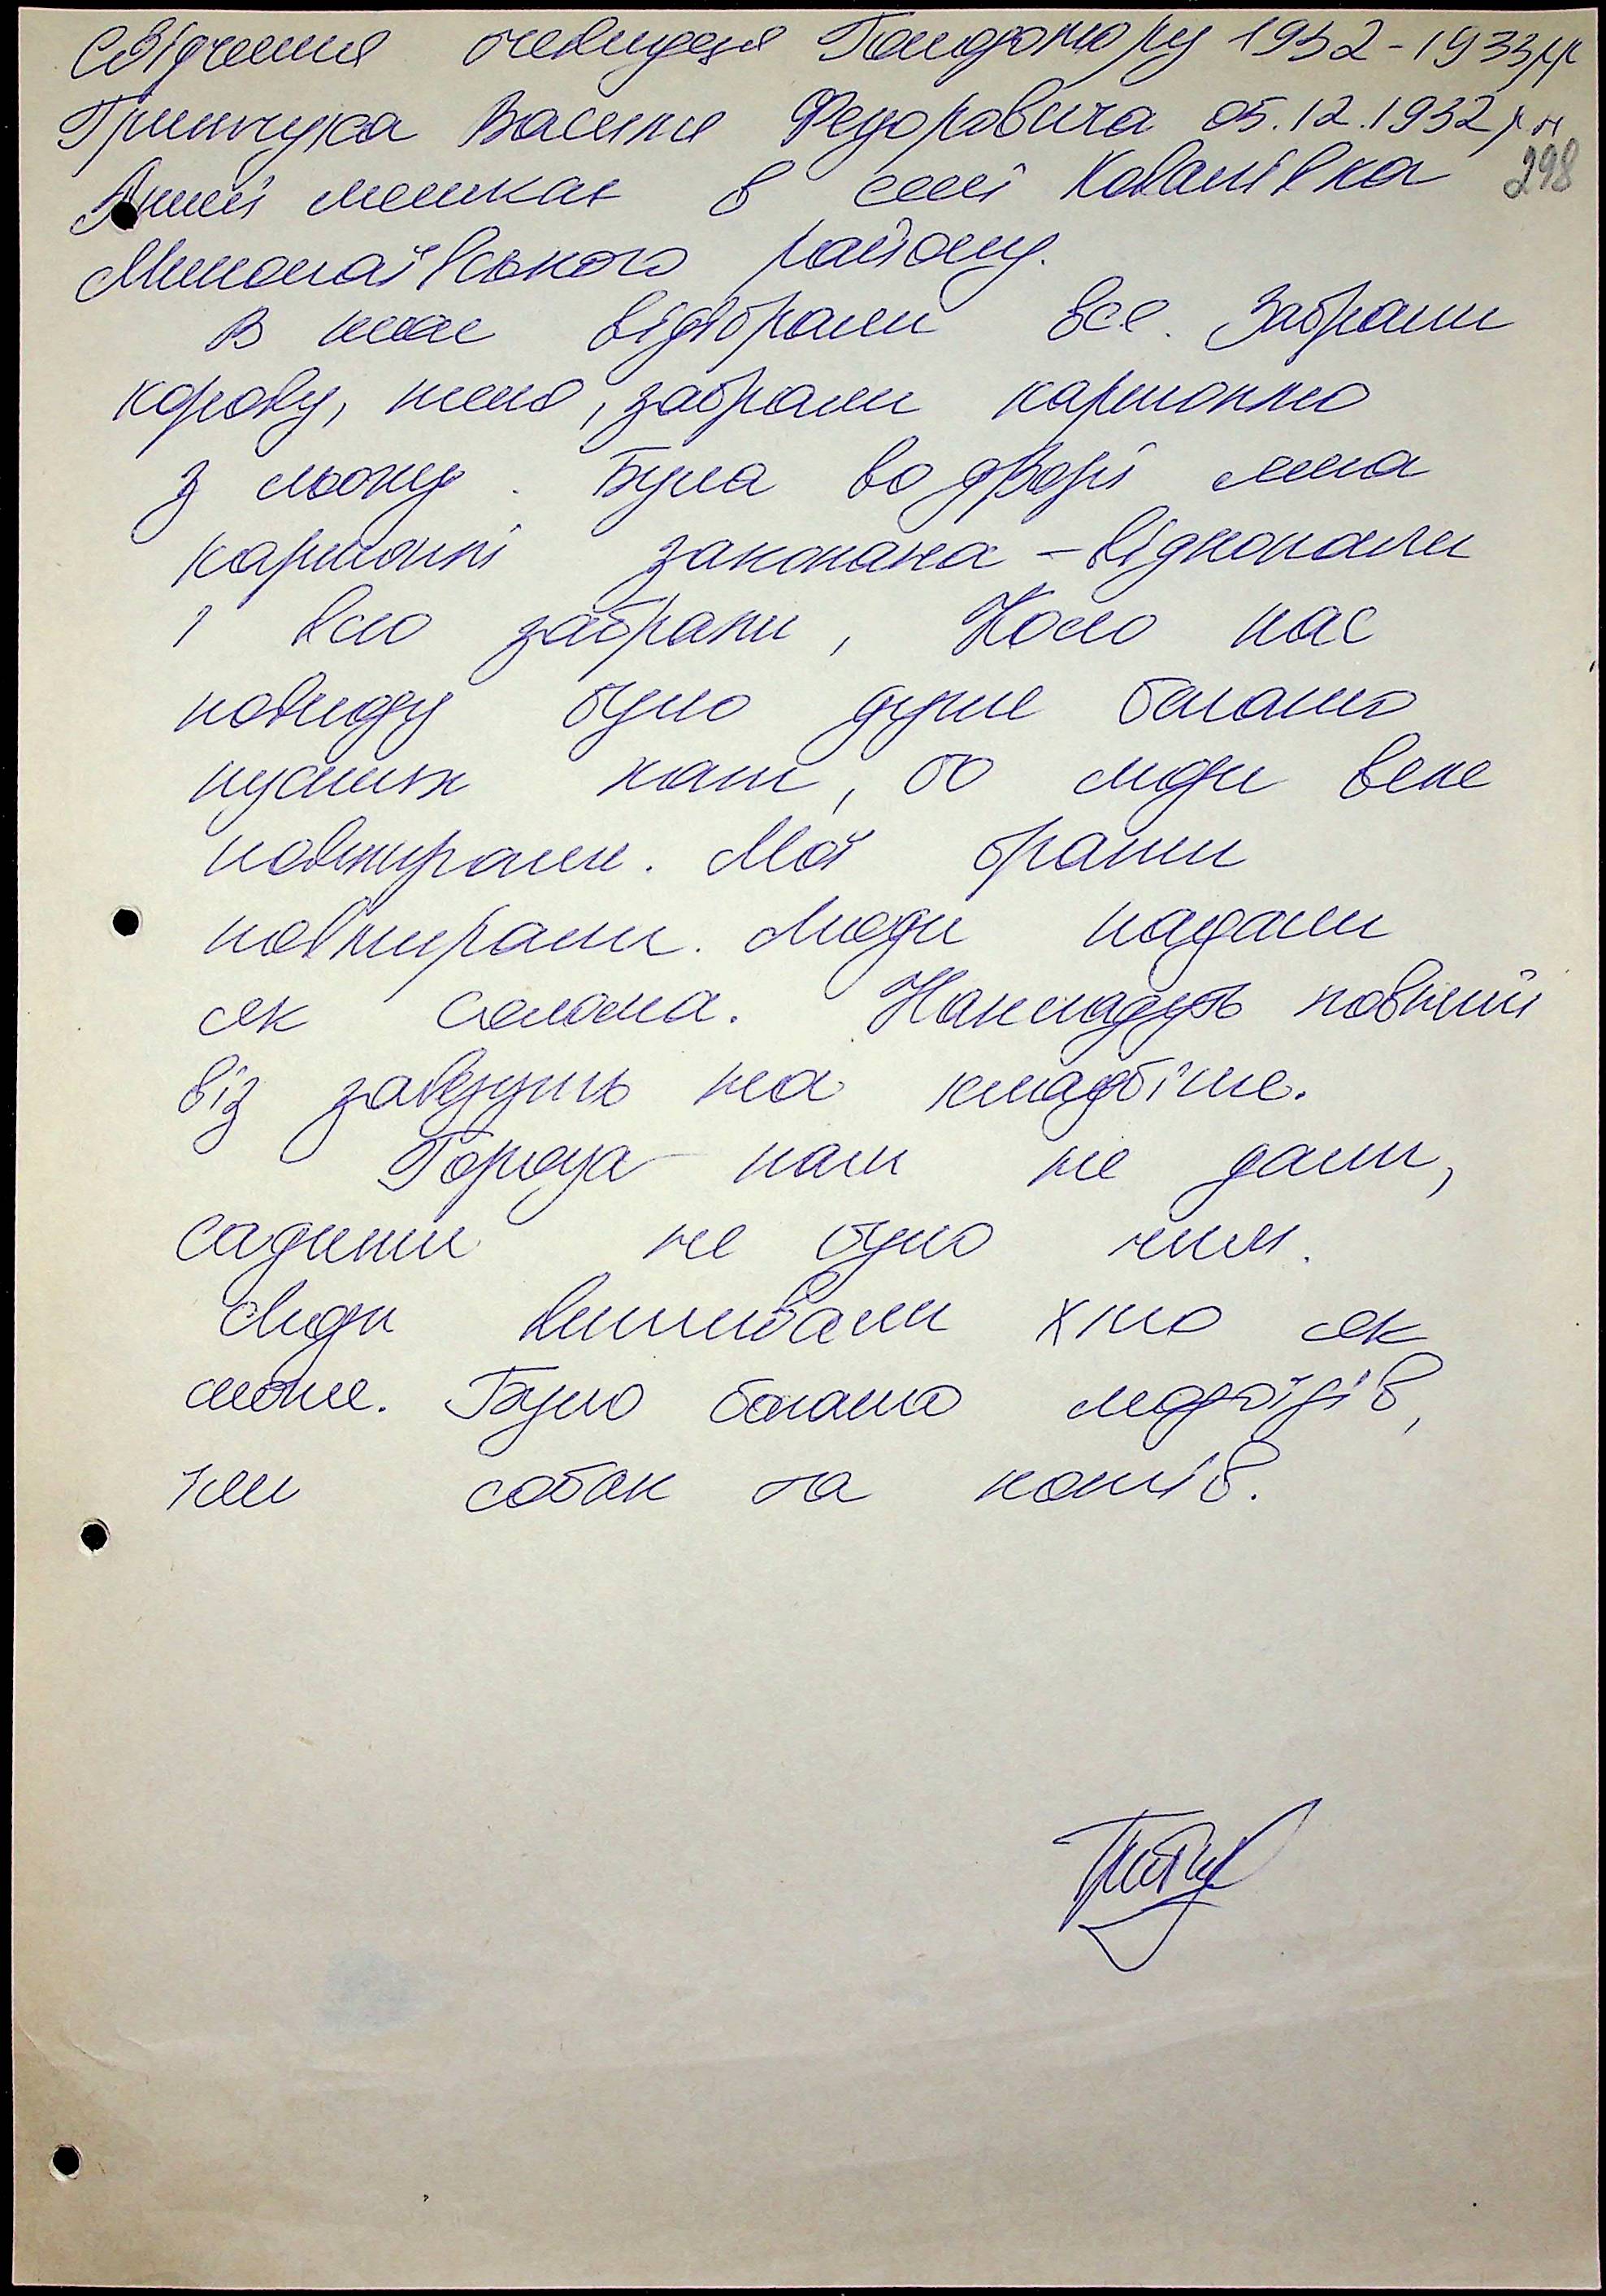 Свідчення очевидця Голодомору 1932-1933рр
Гринчука Василя Федоровича 05.12.1932 р н
298
Який мешкає в селі Ковалівка
Миколаївського району.
В нас відібрали все. Забрали
корову, теля, забрали картоплю
з льоху. Була во дворі яма
картоплі закопана - відкопали
і всю забрали, Коло нас
повсюду було дуже багато
пустих хат, бо люди вже
повмирали. Мої брати
повмирали. Люди падали
як солома. Накладуть повний
віз завезуть на кладбіше.
Города нам не дали,
садити не було чим.
Люди виживали хто як
може. Було багато людоїдів,
їли собак та котів.